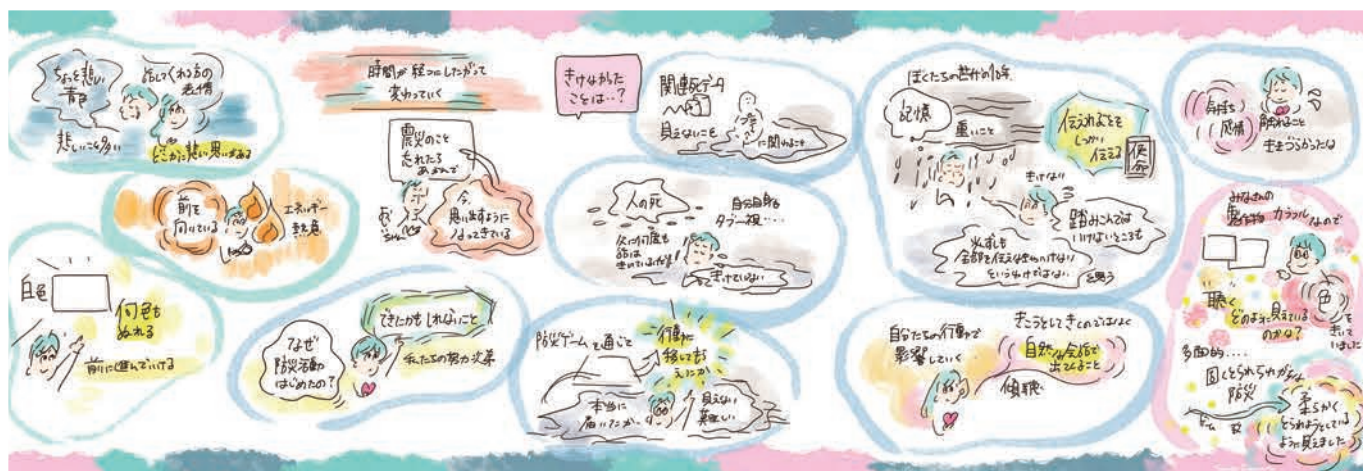 ちょっと悲しい
青
話してくれる方の
表情
悲しいこと多い
どこかに悲しい思いがある
前を
向いている
エネルギー
熱意
白色
何色も
ぬれる
前に進んでいける
時間が経つにしたがって
変わっていく
震災のこと
忘れたろ
あかんで
おじいちゃん
今、
思い出すように
なってきている
なぜ
防災活動
はじめたの?
できたかもしれないこと
私たちの努力次第
きけなかった
ことは‥?
関連死データ
見えないこと
に関わること
人の死
自分自身も
タブー視……
父に何度も
話は
きいているけど
きけていない
防災ゲームを通じて
行動に
移してもら
えたか
本当に
届いたか
見えない
難しい
ぼくたちの世代の10年
記憶
重いこと
伝えれることを
しっかり
伝える
使命
きけない
踏みこんでは
いけないところも
必ずしも
全部を伝えなきゃいけない
というわけではない
と思う
自分たちの行動で
影響していく
きこうとしてきくのではなく
自然な会話で
出てくること
傾聴
気持ち
感情
触れること
生きづらかったな
みなさんの
制作物 カラフルなので
聴く
どのように見えている
のかな?
色
を
きいて
いました
多面的‥‥
固くとられられがちな
防災
ゲーム
柔らかく
とられようとしている
ように見えました